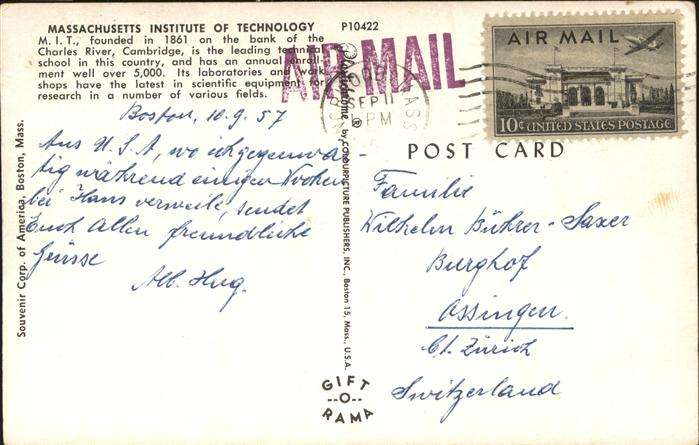 MASSACHUSETTS INSTITUTE OF TECHNOLOGY P10422
M. I. T., founded in 1861 on the bank of the
Charles River, Cambridge, is the leading technical
school in this country, and has an annual enroll-
ment well over 5,000. Its laboratories and work
shops have the latest in scientific equipment for
research in a number of various fields.
AIR MAIL
SEP 11
PM
MASS
AIR MAIL
10¢ UNITED STATES POSTAGE
Boston, 10.9.57
Aus U.S.A, wo ich gegenwär-
tig während einigen Wochen
bei Hans verweile, sendet
Euch Allen freundliche
Grüsse
Alb. Hug.
POST CARD
Familie
Wilhelm Bührer-Saxer
Burghof
Ossingen.
Ct. Zürich
Switzerland
Souvenir Corp. of America, Boston, Mass.
Plastichrome ® by COLOURPICTURE PUBLISHERS, INC., Boston 15, Mass., U.S.A.
GIFT
--O--
RAMA